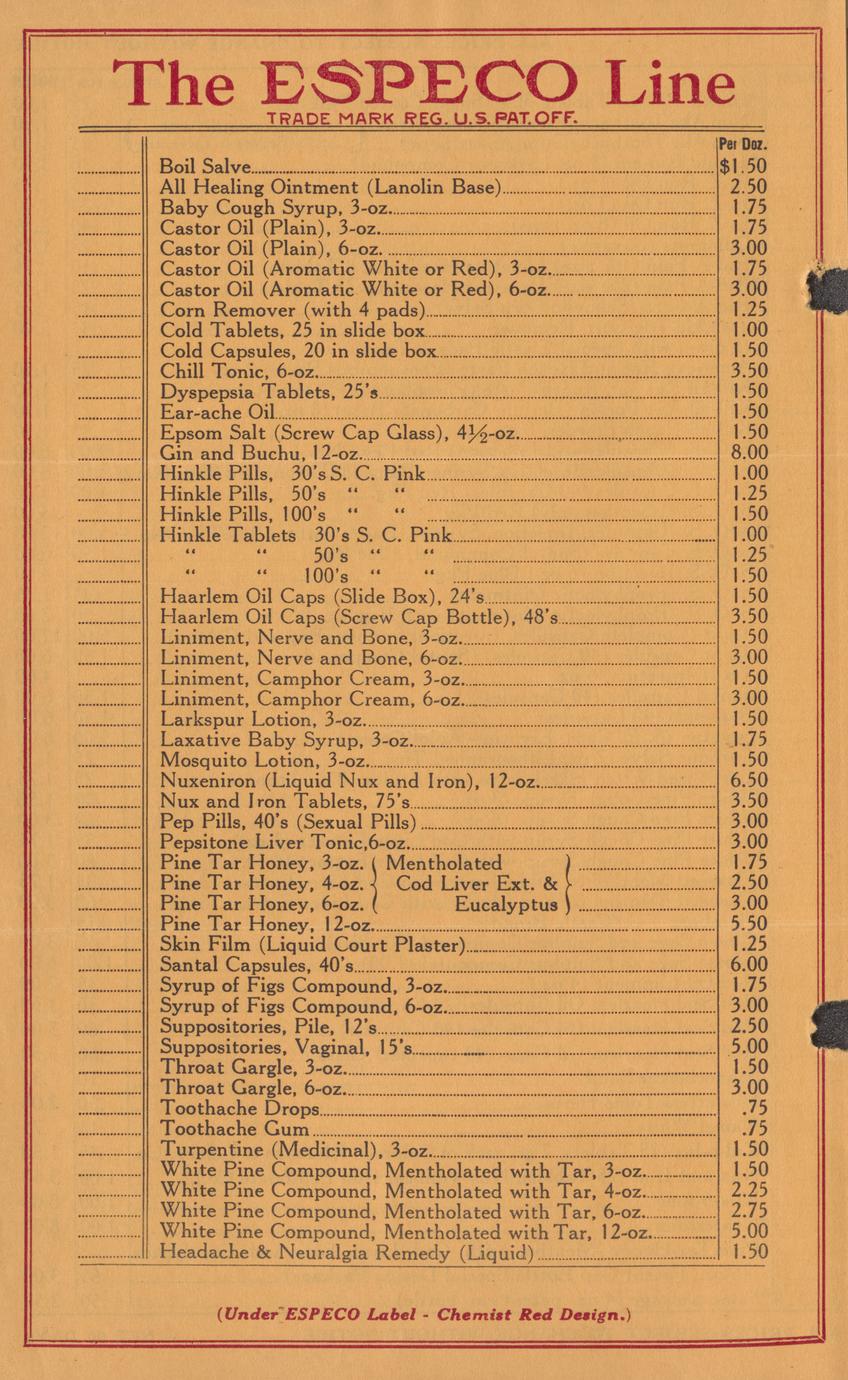 The ESPECO Line
TRADE MARK REG. U.S. PAT. OFF.
Per Doz.
Boil Salve $1.50
All Healing Ointment (Lanolin Base) 2.50
Baby Cough Syrup, 3-oz. 1.75
Castor Oil (Plain), 3-oz. 1.75
Castor Oil (Plain), 6-oz. 3.00
Castor Oil (Aromatic White or Red), 3-oz. 1.75
Castor Oil (Aromatic White or Red), 6-oz. 3.00
Corn Remover (with 4 pads) 1.25
Cold Tablets, 25 in slide box 1.00
Cold Capsules, 20 in slide box 1.50
Chill Tonic, 6-oz. 3.50
Dyspepsia Tablets, 25's 1.50
Ear-ache Oil 1.50
Epsom Salt (Screw Cap Glass), 4½-oz. 1.50
Gin and Buchu, 12-oz. 8.00
Hinkle Pills, 30's S. C. Pink 1.00
Hinkle Pills, 50's “ “ 1.25
Hinkle Pills, 100's “ “ 1.50
Hinkle Tablets 30's S. C. Pink 1.00
“ “ 50's “ “ 1.25
“ “ 100's “ “ 1.50
Haarlem Oil Caps (Slide Box), 24's 1.50
Haarlem Oil Caps (Screw Cap Bottle), 48's 3.50
Liniment, Nerve and Bone, 3-oz. 1.50
Liniment, Nerve and Bone, 6-oz. 3.00
Liniment, Camphor Cream, 3-oz. 1.50
Liniment, Camphor Cream, 6-oz. 3.00
Larkspur Lotion, 3-oz. 1.50
Laxative Baby Syrup, 3-oz. 1.75
Mosquito Lotion, 3-oz. 1.50
Nuxeniron (Liquid Nux and Iron), 12-oz. 6.50
Nux and Iron Tablets, 75's 3.50
Pep Pills, 40's (Sexual Pills) 3.00
Pepsitone Liver Tonic,6-oz. 3.00
Pine Tar Honey, 3-oz. { Mentholated } 1.75
Pine Tar Honey, 4-oz. { Cod Liver Ext. & } 2.50
Pine Tar Honey, 6-oz. { Eucalyptus } 3.00
Pine Tar Honey, 12-oz. 5.50
Skin Film (Liquid Court Plaster) 1.25
Santal Capsules, 40's 6.00
Syrup of Figs Compound, 3-oz. 1.75
Syrup of Figs Compound, 6-oz. 3.00
Suppositories, Pile, 12's 2.50
Suppositories, Vaginal, 15's 5.00
Throat Gargle, 3-oz. 1.50
Throat Gargle, 6-oz. 3.00
Toothache Drops .75
Toothache Gum .75
Turpentine (Medicinal), 3-oz. 1.50
White Pine Compound, Mentholated with Tar, 3-oz. 1.50
White Pine Compound, Mentholated with Tar, 4-oz. 2.25
White Pine Compound, Mentholated with Tar, 6-oz. 2.75
White Pine Compound, Mentholated with Tar, 12-oz. 5.00
Headache & Neuralgia Remedy (Liquid) 1.50
(Under ESPECO Label - Chemist Red Design.)